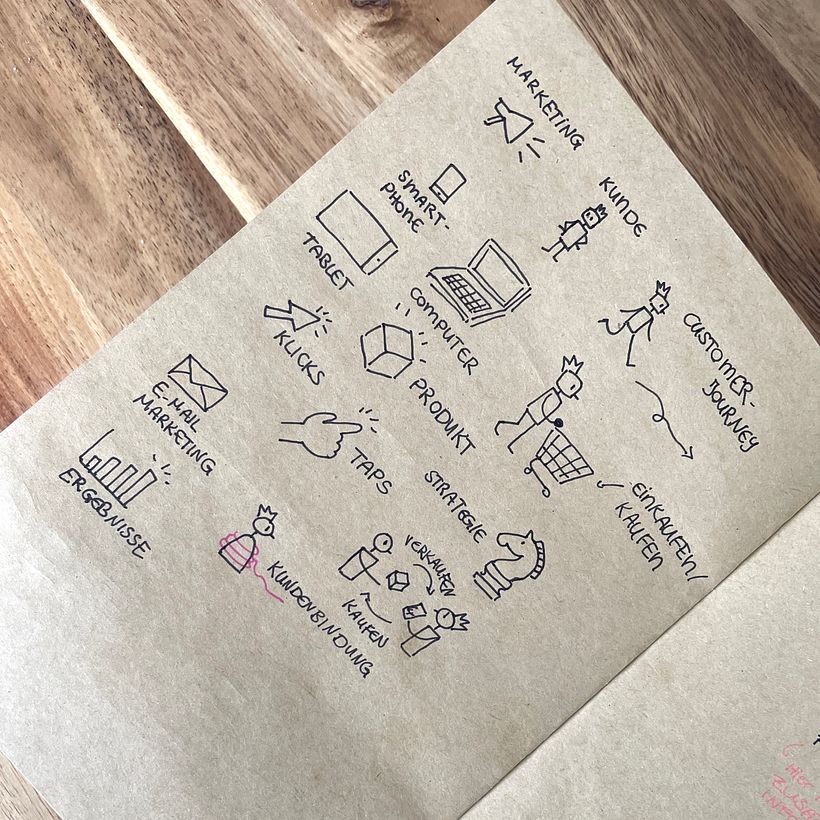 MARKETING
SMART-
PHONE
KUNDE
TABLET
COMPUTER
CUSTOMER-
JOURNEY
KLICKS
PRODUKT
E-MAIL
MARKETING
TAPS
EINKAUFEN/
KAUFEN
STRATEGIE
ERGEBNISSE
VERKAUFEN
KAUFEN
KUNDENBINDUNG
HIER